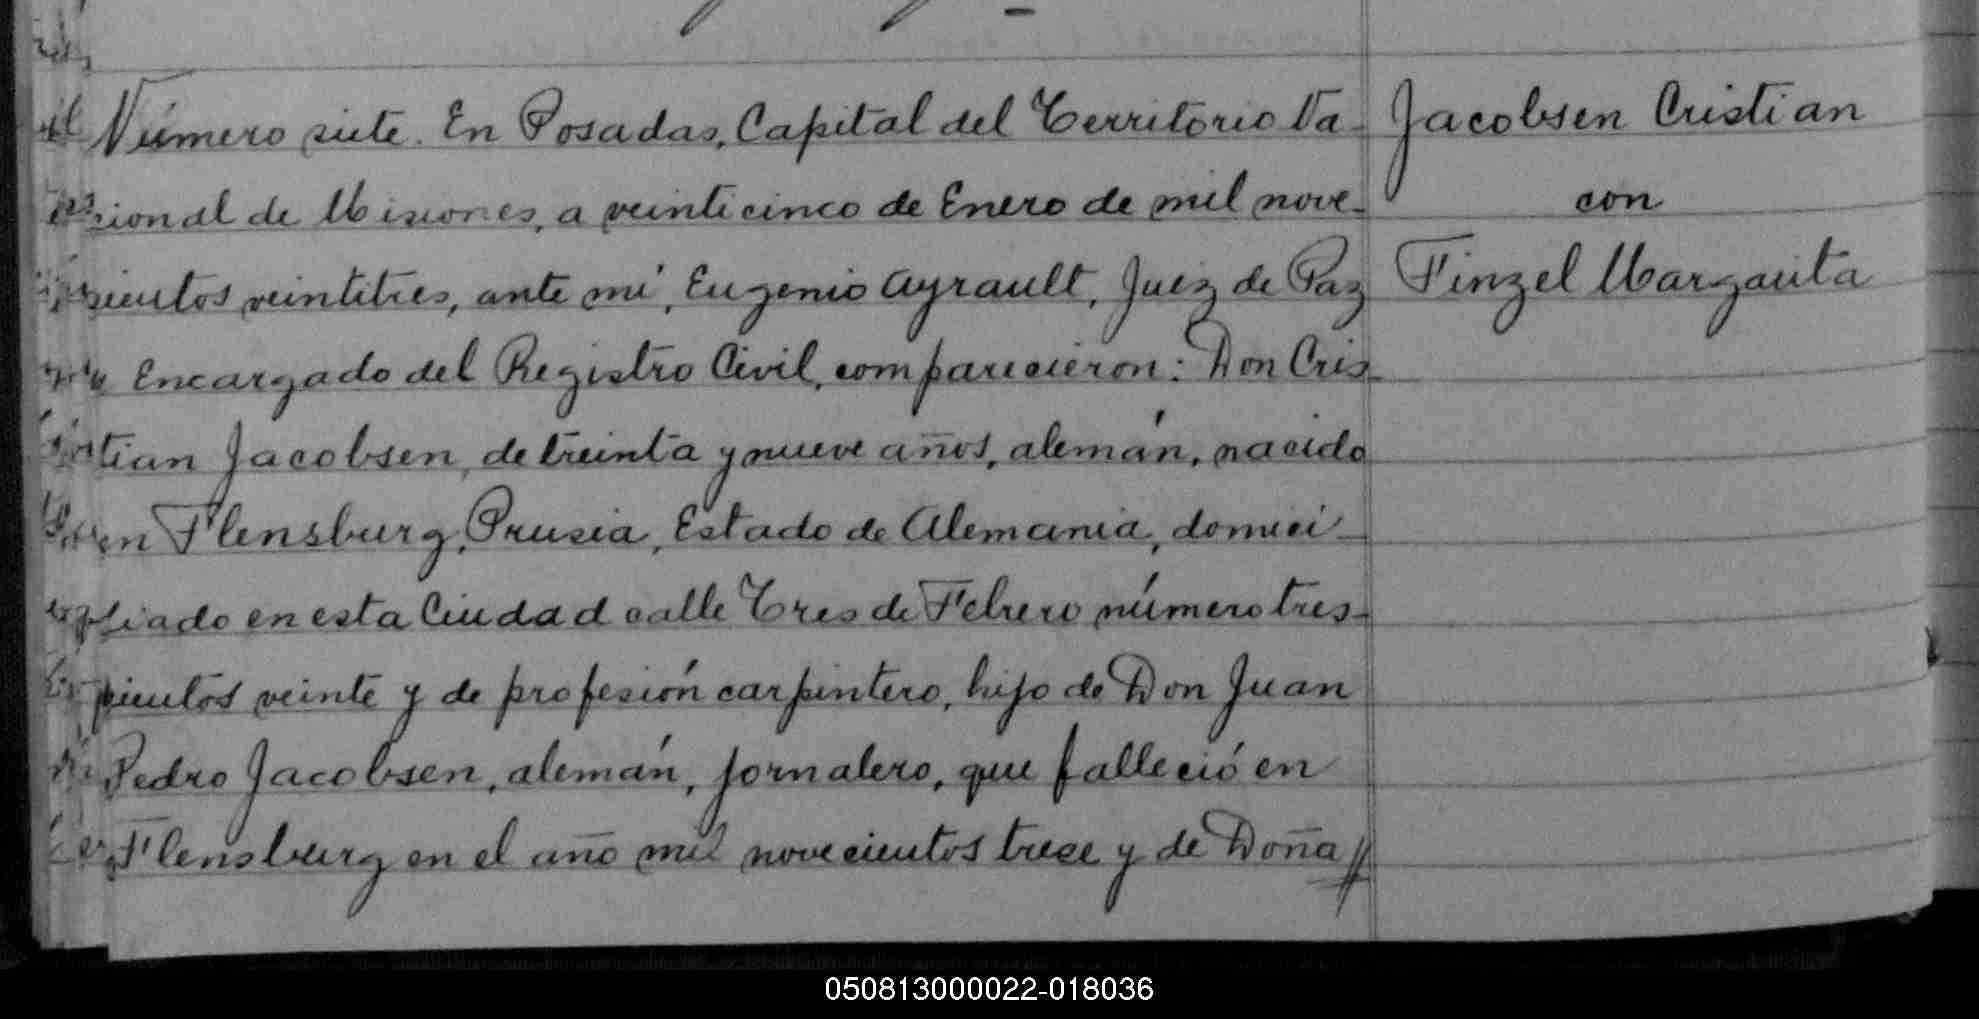 Número siete. En Posadas, Capital del Territorio Na-
cional de Misiones, a veinticinco de Enero de mil nove-
cientos veintitres, ante mí, Eugenio Ayrault, Juez de Paz
Encargado del Registro Civil, comparecieron: Don Cris-
tian Jacobsen, de treinta y nueve años, alemán, nacido
en Flensburg, Prusia, Estado de Alemania, domici-
liado en esta Ciudad calle Tres de Febrero número tres-
cientos veinte y de profesión carpintero, hijo de Don Juan
Pedro Jacobsen, alemán, jornalero, que falleció en
Flensburg en el año mil novecientos trece y de Doña //
Jacobsen Cristian
con
Finzel Margarita
050813000022-018036